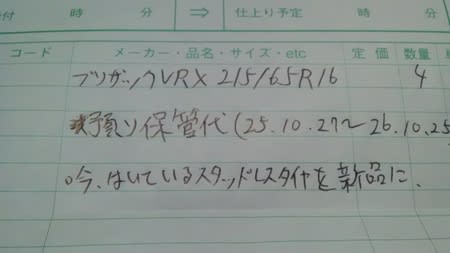 付 時 分 ⇒ 仕上り予定 時 分
コード メーカー・品名・サイズ・etc 定価 数量
ブリザックVRX 215/65R16 4
預り保管代(25.10.27～26.10.25
○今、はいているスタッドレスタイヤを新品に、